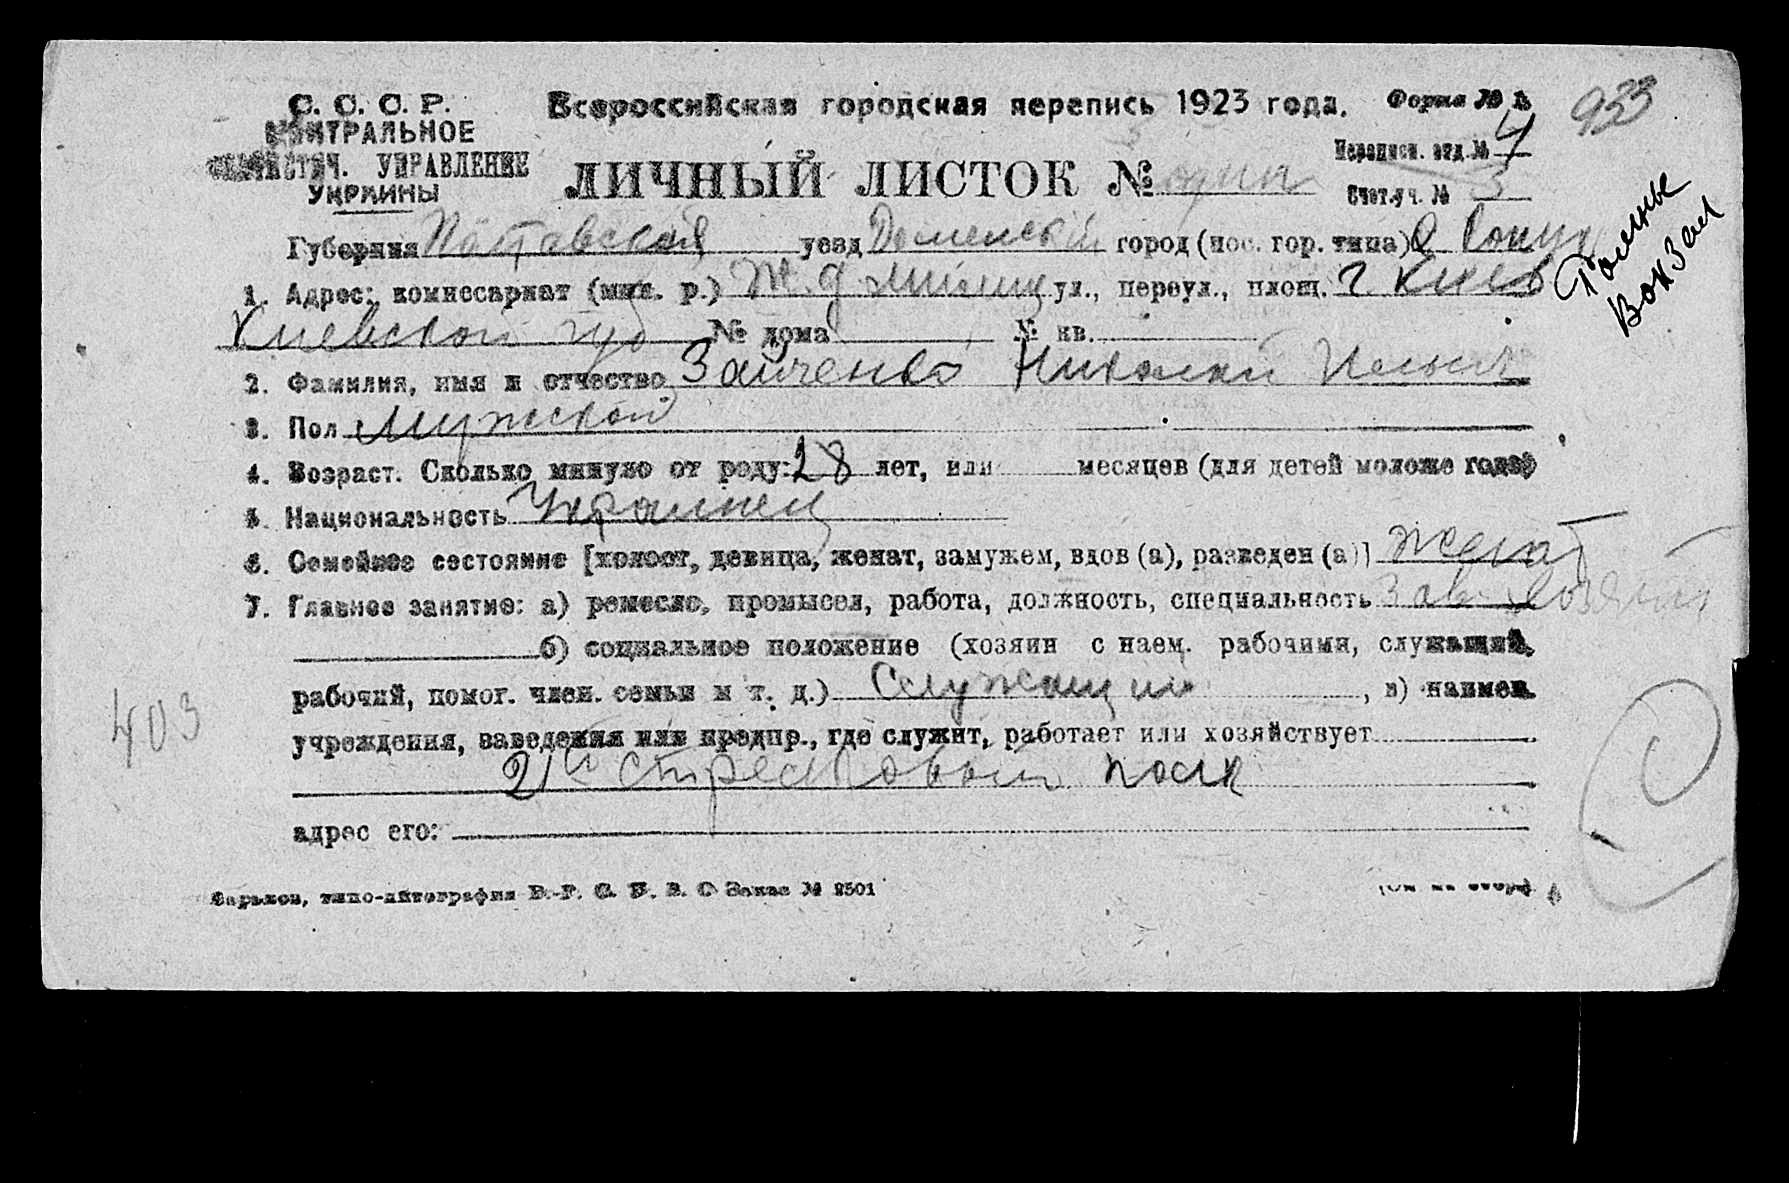 С. С. С. Р.
ЦЕНТРАЛЬНОЕ
СТАТИСТИЧ. УПРАВЛЕНИЕ
УКРАИНЫ
Всероссийская городская перепись 1923 года.
Форма № 1
933
ЛИЧНЫЙ ЛИСТОК № один
Переписн. отд. № 4
Счет. уч. № 3
Губерния Полтавская уезд Роменский город (пос. гор. типа)
1. Адрес: комиссариат (мил. р.) Ж. д. ул., переул., площ. г. Киев
Киевской губ № дома № кв.
Ромны
Вокзал
2. Фамилия, имя и отчество Зайченко Николай Ильич
3. Пол Мужской
4. Возраст. Сколько минуло от роду: 28 лет, или месяцев (для детей моложе года)
5. Национальность Украинец
6. Семейное состояние [холост, девица, женат, замужем, вдов (а), разведен (а)] женат
7. Главное занятие: а) ремесло, промысел, работа, должность, специальность Зав.
б) социальное положение (хозяин с наем. рабочими, служащий,
рабочий, помог. член. семьи и т. д.) Служащий, в) наимен.
403
учреждения, заведения или предпр., где служит, работает или хозяйствует
21й стрелковый полк
адрес его:
Харьков, типо-литография Заказ № 2501